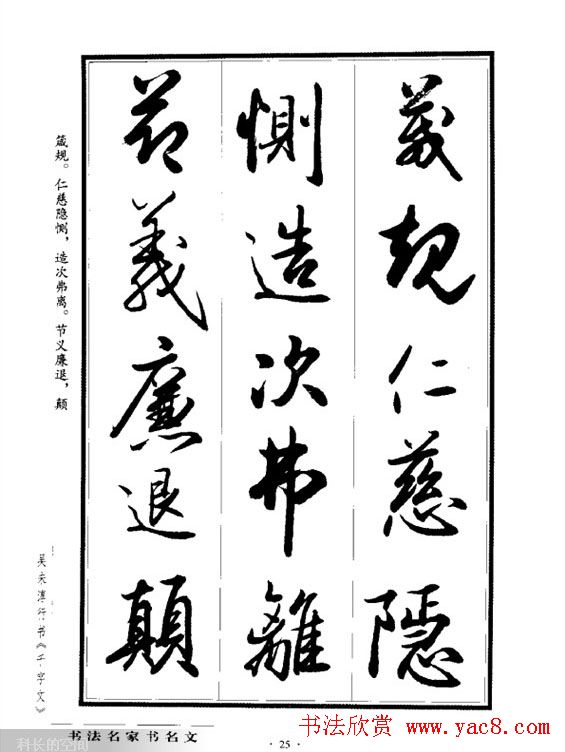 箴規仁慈隱
惻造次弗離
節義廉退顛
箴规。仁慈隐恻，造次弗离。节义廉退，颠
吴未淳行书《千字文》
书法名家书名文
科长的空间
·25·
书法欣赏 www.yac8.com